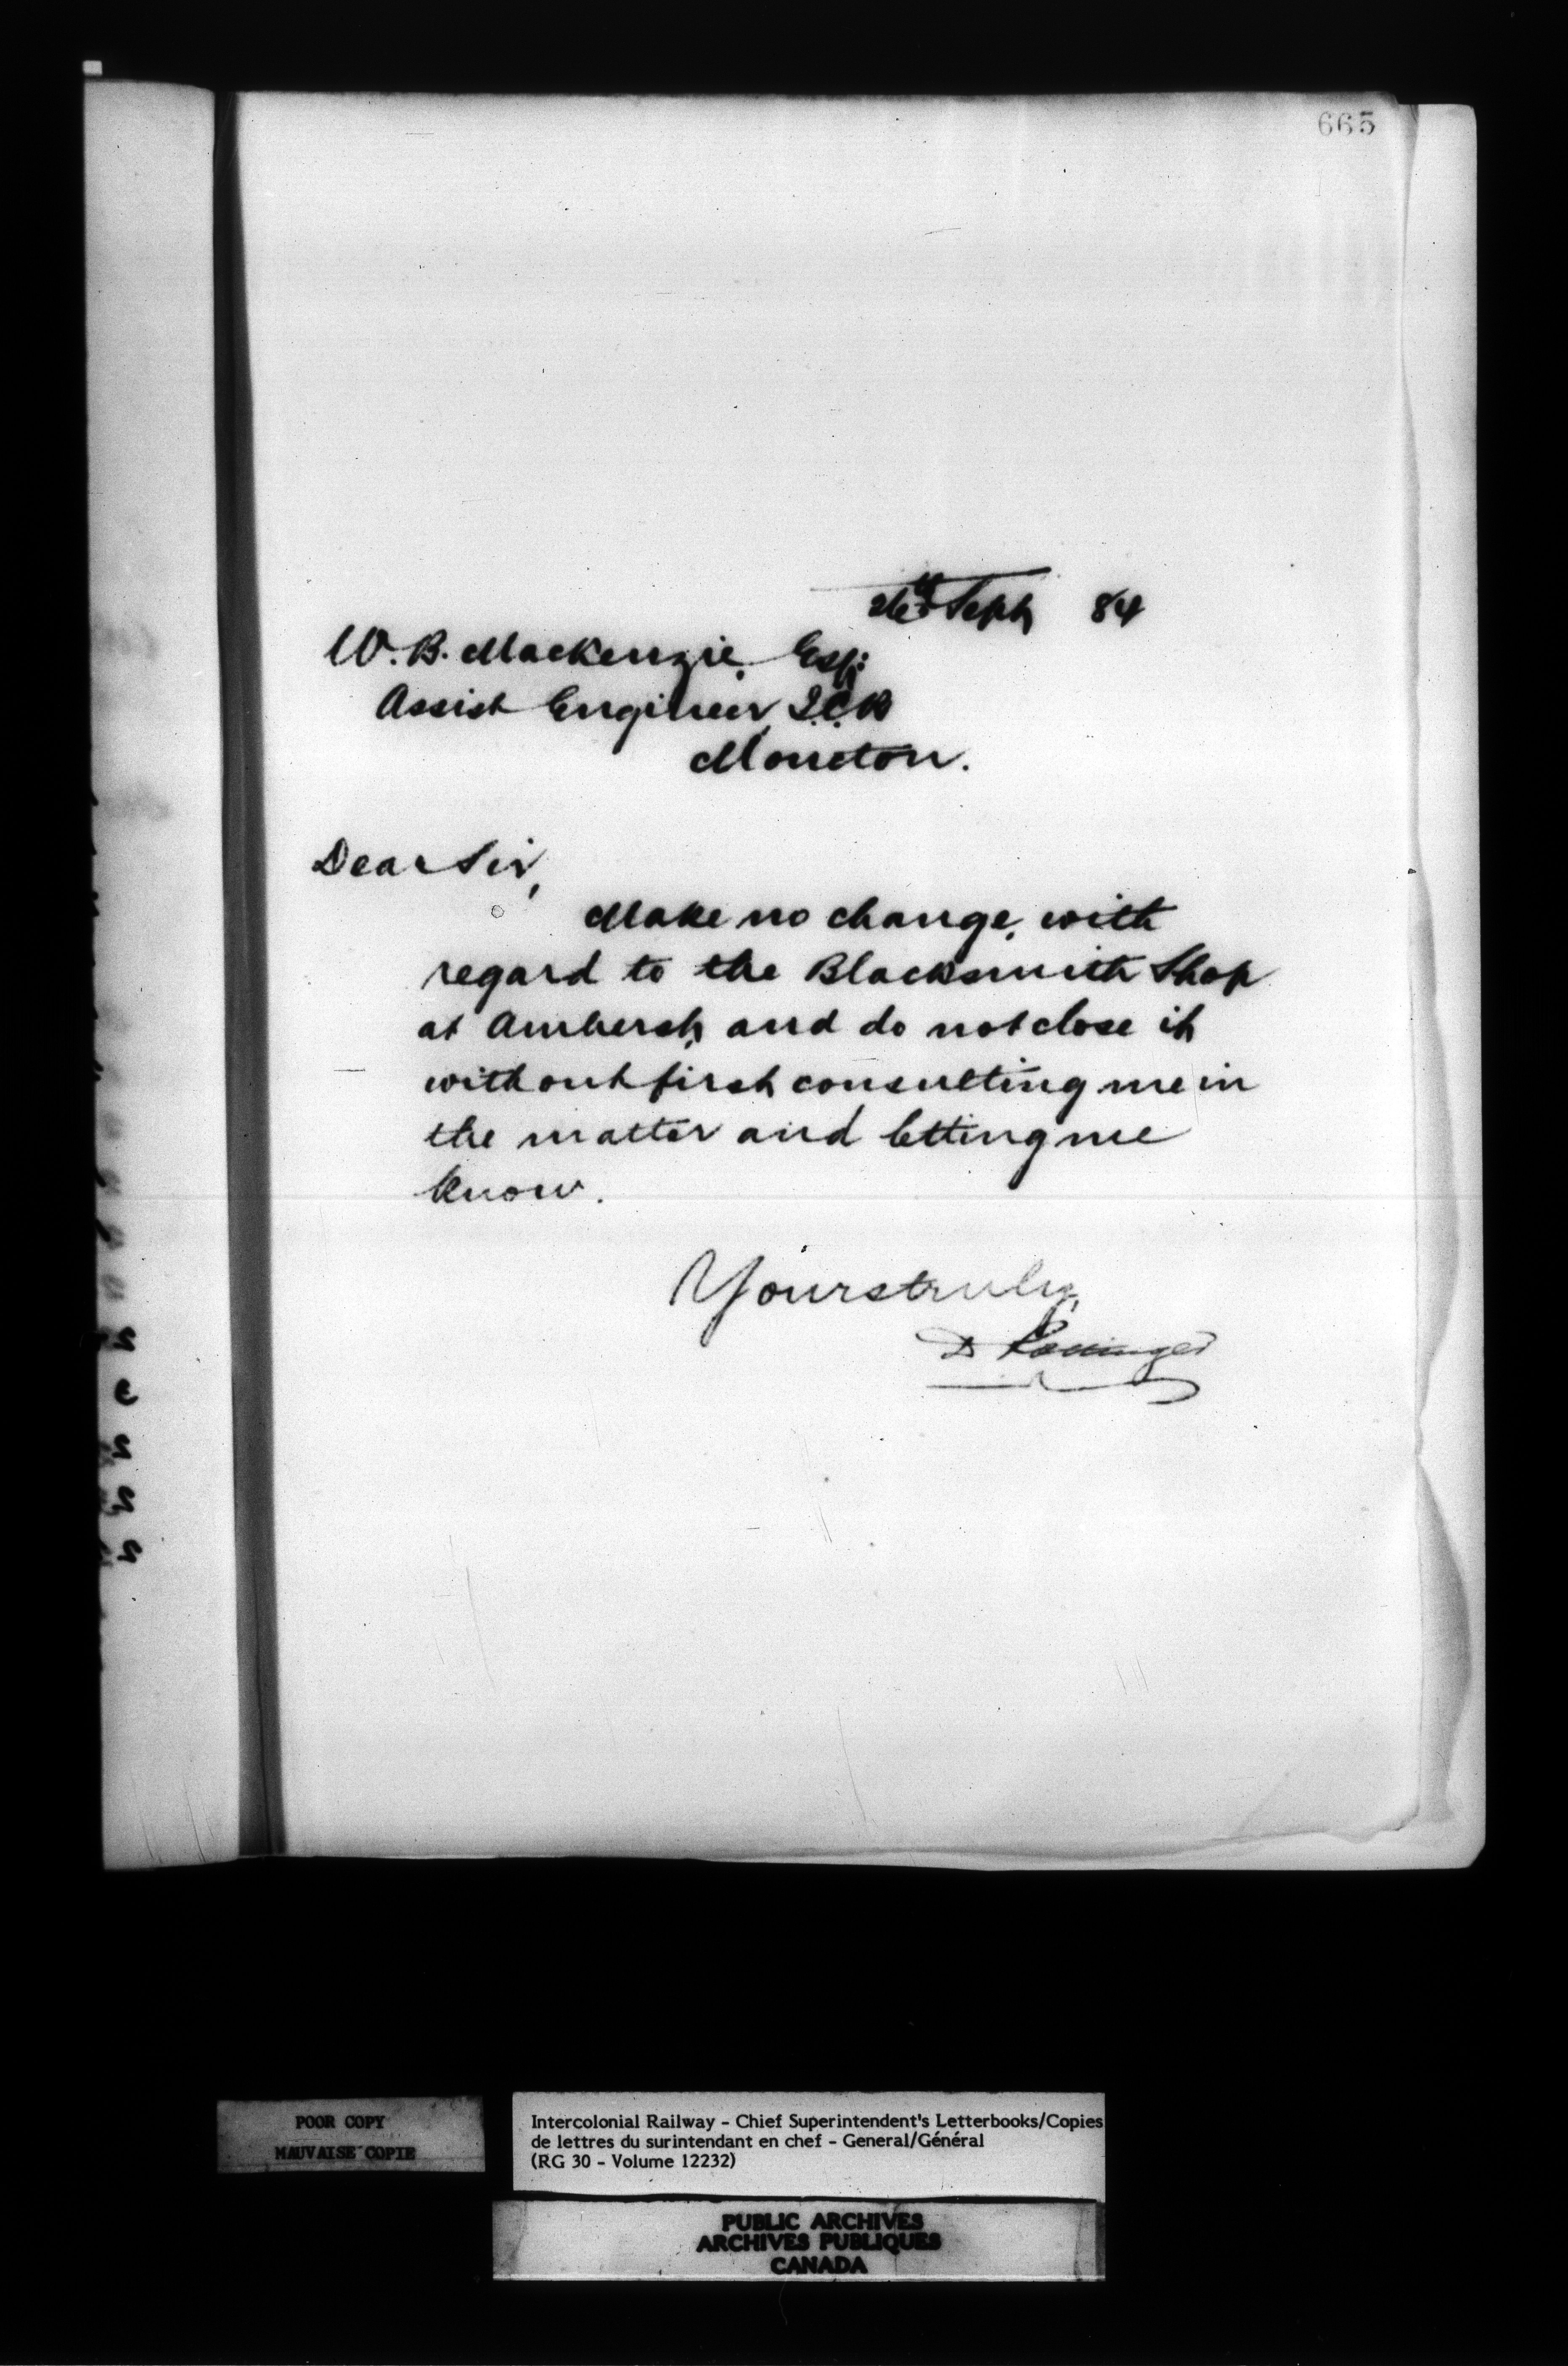 665
26th Sept 84
W. B. Mackenzie, Esq:
Assist Engineer, I.C.R
Moncton.
Dear Sir,
Make no change, with
regard to the Blacksmith Shop
at Amherst, and do not close it
without first consulting me in
the matter and letting me
know.
Yours truly,
D Pottinger
POOR COPY
MAUVAISE COPIE
Intercolonial Railway - Chief Superintendent's Letterbooks/Copies
de lettres du surintendant en chef - General/Général
(RG 30 - Volume 12232)
PUBLIC ARCHIVES
ARCHIVES PUBLIQUES
CANADA